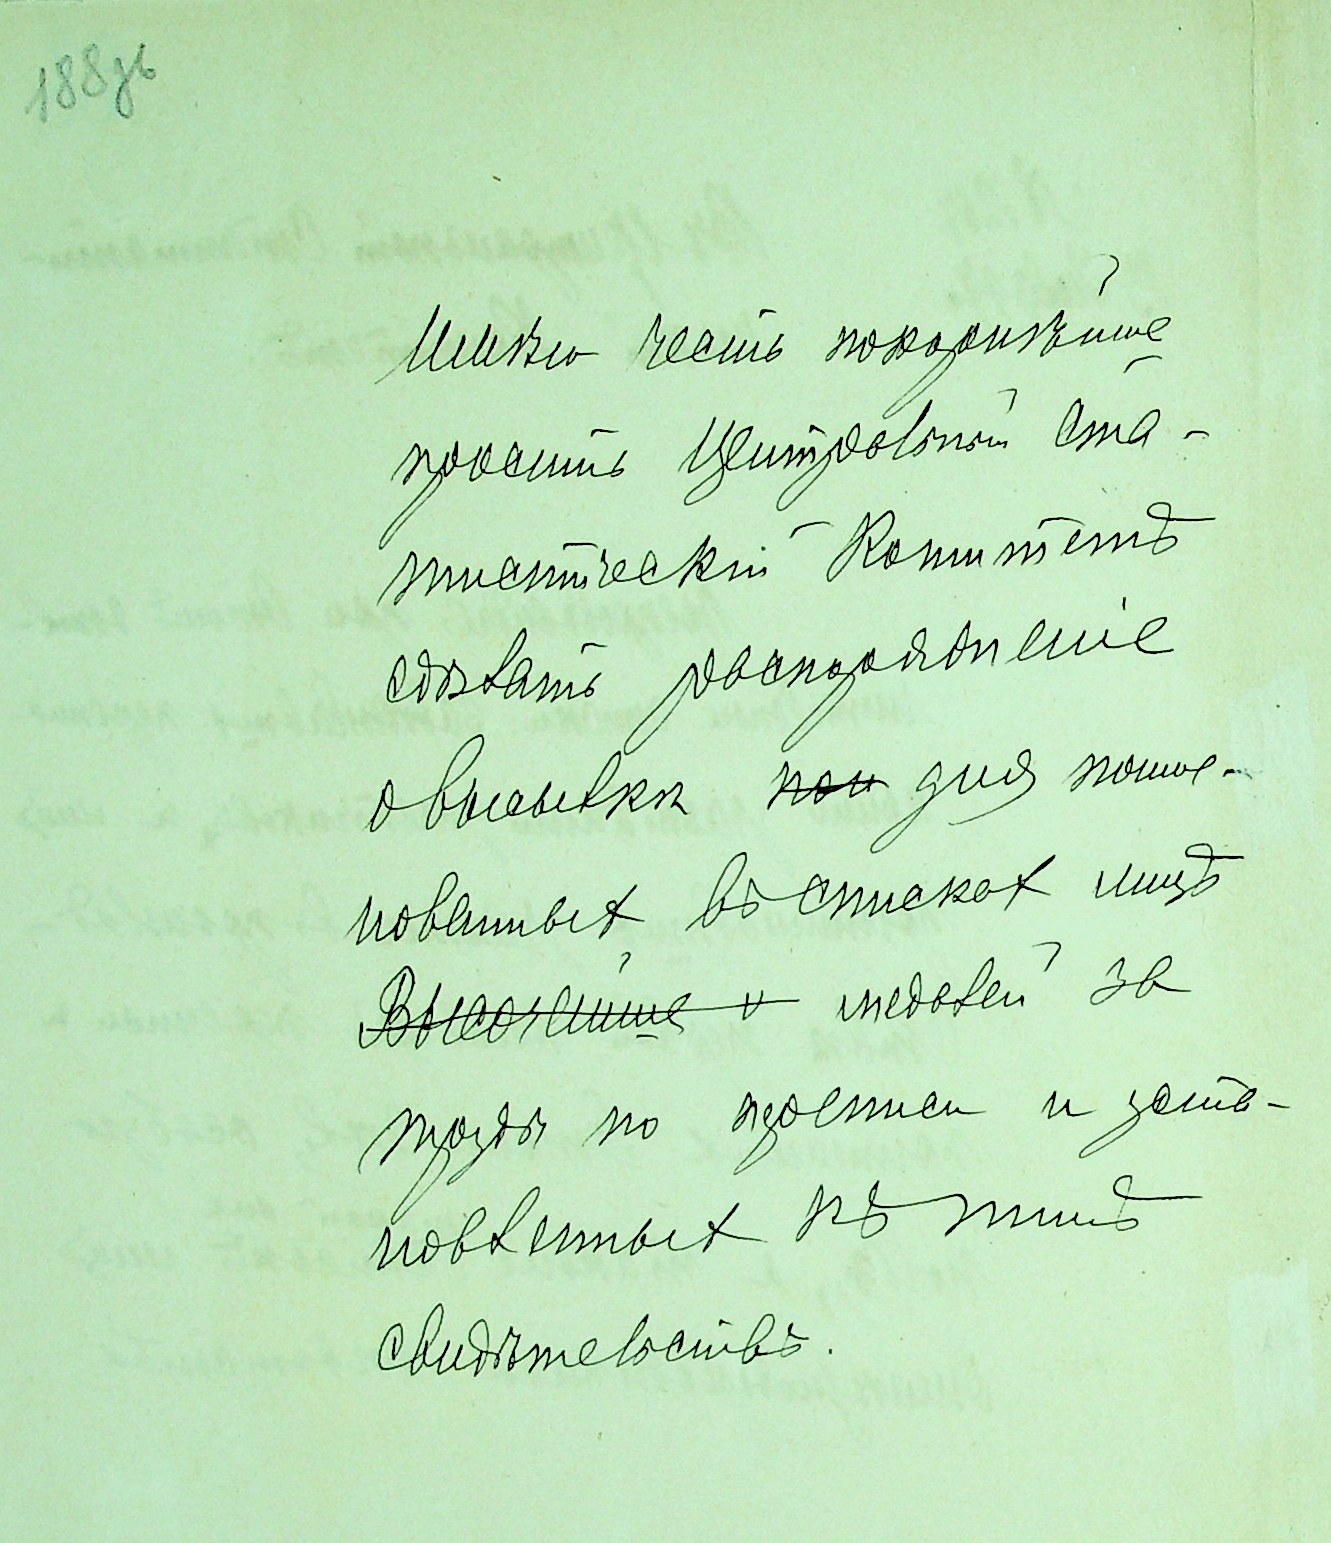 188дъ
Имѣю честь покорнѣйше
просить Центральный Ста-
тистическій Комитетъ
сдѣлать распоряженіе
о высылкѣ пои для поиме-
нованныхъ въ спискахъ лицъ
Высочайше и медалей за
труды по переписи и уста-
новленныхъ къ нимъ
свидѣтельствъ.